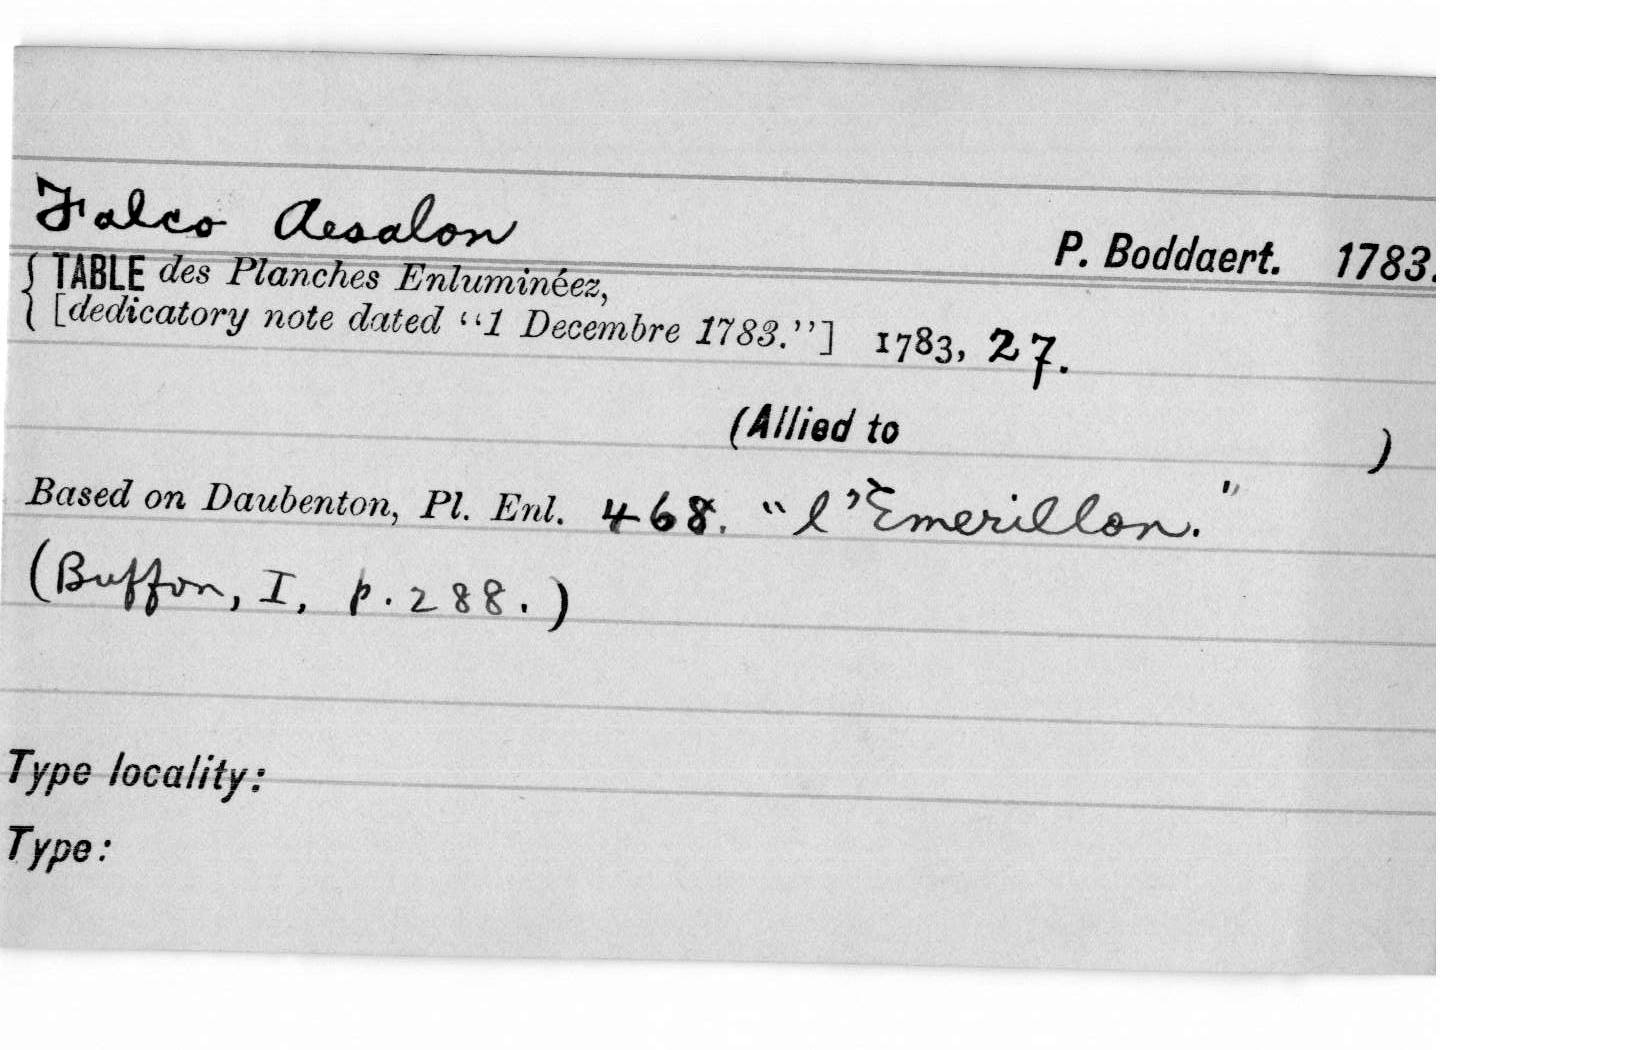 Falco Aesalon
P. Boddaert. 1783.
{ TABLE des Planches Enluminéez,
[dedicatory note dated “1 Decembre 1783.”] 1783, 27.
(Allied to )
Based on Daubenton, Pl. Enl. 468. “l’Emerillon.”
(Buffon, I, p. 288.)
Type locality:
Type: